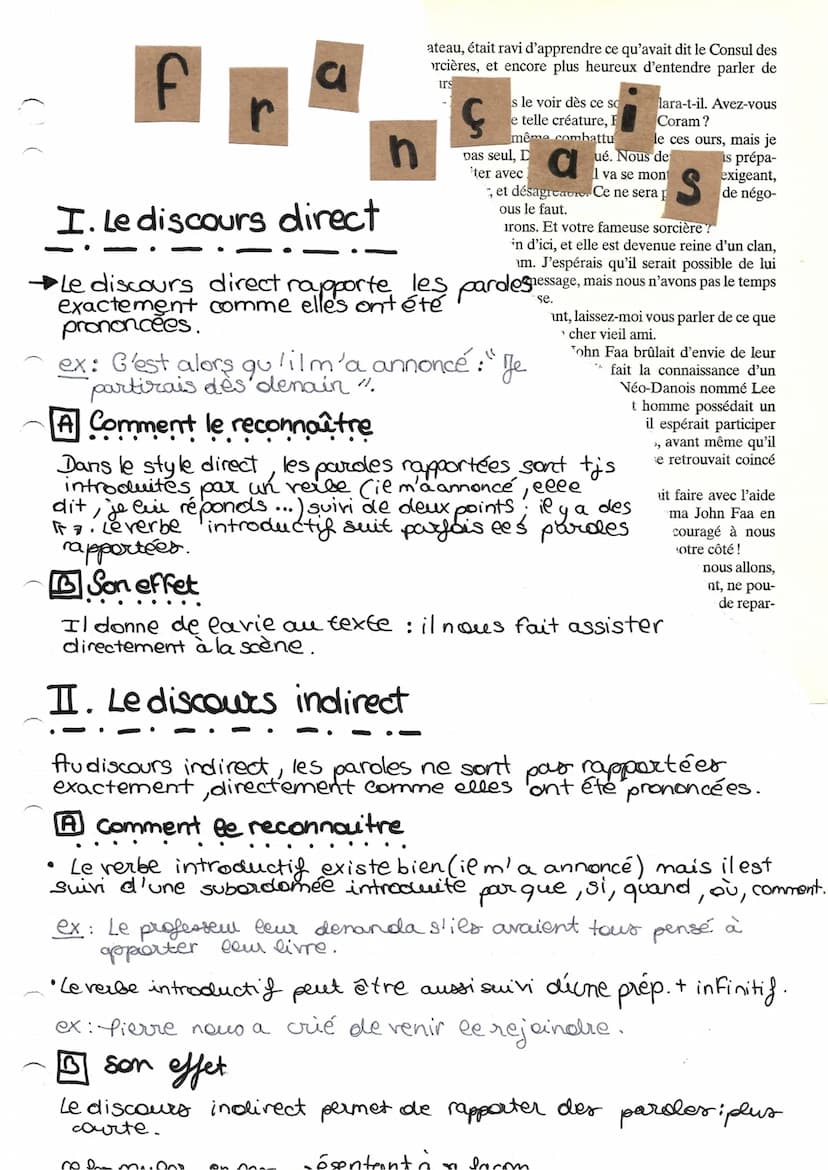 français
ateau, était ravi d'apprendre ce qu'avait dit le Consul des
rcières, et encore plus heureux d'entendre parler de
urs
s le voir dès ce so lara-t-il. Avez-vous
e telle créature, F Coram ?
même combattu le ces ours, mais je
pas seul, D ué. Nous de s prépa-
ter avec l va se mont exigeant,
, et désagréable. Ce ne sera p de négo-
ous le faut.
irons. Et votre fameuse sorcière ?
in d'ici, et elle est devenue reine d'un clan,
am. J'espérais qu'il serait possible de lui
message, mais nous n'avons pas le temps
se.
ant, laissez-moi vous parler de ce que
cher vieil ami.
John Faa brûlait d'envie de leur
fait la connaissance d'un
Néo-Danois nommé Lee
t homme possédait un
il espérait participer
, avant même qu'il
e retrouvait coincé
it faire avec l'aide
ma John Faa en
couragé à nous
otre côté !
nous allons,
nt, ne pou-
de repar-
I. Le discours direct
→ Le discours direct rapporte les paroles
exactement comme elles ont été
prononcées.
ex : C'est alors qu'il m'a annoncé : " Je
partirais dès demain ".
A Comment le reconnaître
Dans le style direct, les paroles rapportées sont tjs
introduites par un verbe (il m'a annoncé, elle
dit, je lui réponds ...) suivi de deux points ; il y a des
. Le verbe introductif suit parfois les paroles
rapportées.
B Son effet
Il donne de la vie au texte : il nous fait assister
directement à la scène.
II. Le discours indirect
Au discours indirect, les paroles ne sont pas rapportées
exactement, directement comme elles ont été prononcées.
A Comment le reconnaitre
• Le verbe introductif existe bien (il m'a annoncé) mais il est
suivi d'une subordonnée introduite par que, si, quand, où, comment.
ex : Le professeur leur demanda s'ils avaient tous pensé à
apporter leur livre.
• Le verbe introductif peut être aussi suivi d'une prép. + infinitif.
ex : Pierre nous a crié de venir le rejoindre.
B Son effet
Le discours indirect permet de rapporter des paroles : plus
courte.